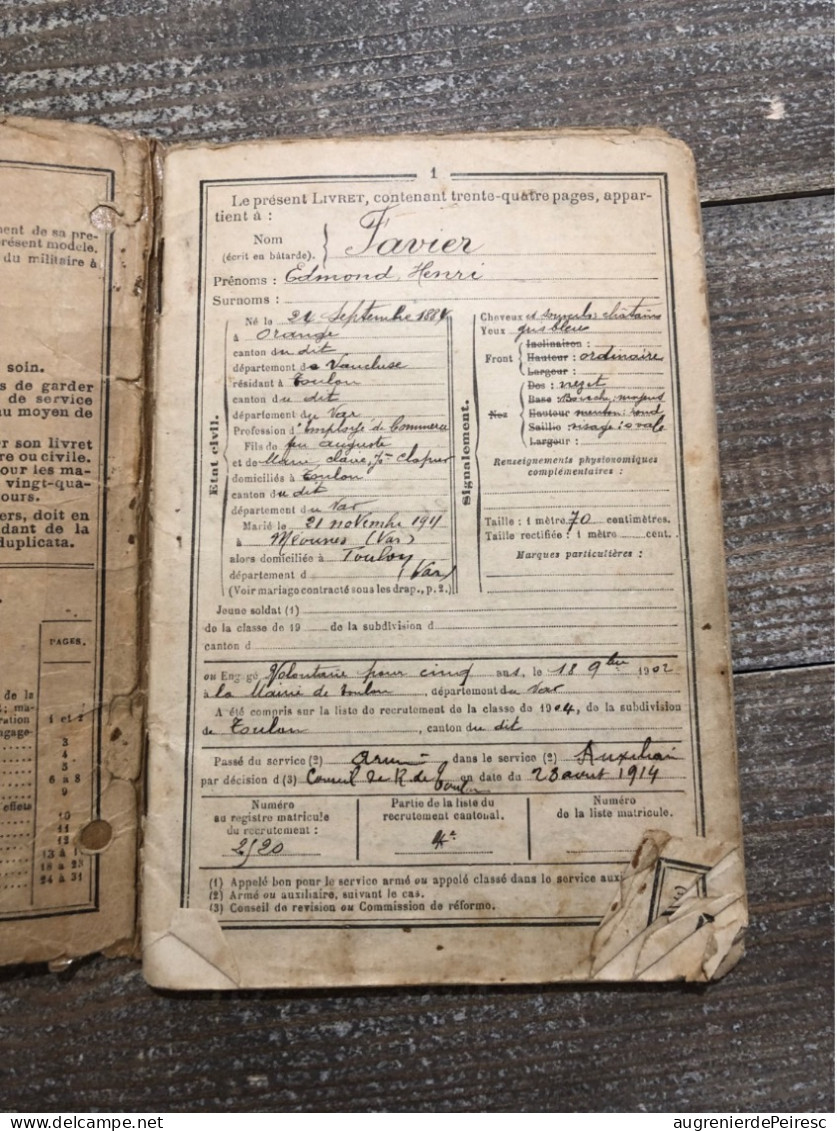 ment de sa pre-
résent modèle.
du militaire à
soin.
s de garder
de service
au moyen de
er son livret
re ou civile.
our les ma-
vingt-qua-
ours.
ers, doit en
dant de la
duplicata.
PAGES.
de la
t; ma-
ration
ngage-
1 et 2
3
4
5
6 à 8
9
effets
10
11
12
13 à 1
18 à 23
24 à 31
1
Le présent LIVRET, contenant trente-quatre pages, appar-
tient à :
Nom
(écrit en bâtarde).
Favier
Prénoms : Edmond, Henri
Surnoms :
Etat civil.
Né le 24 Septembre 1884
à Orange
canton du dit
département de Vaucluse
résidant à Toulon
canton du dit
département du Var
Profession d'Employé de Commerce
Fils de feu auguste
et de Marie claire,
domiciliés à Toulon
canton du dit
département du Var
Marié le 21 novembre 1911
à Méounes (Var)
alors domiciliée à Toulon
département d (Var)
(Voir mariage contracté sous les drap., p. 2.)
Signalement.
Cheveux et sourcils: châtains
Yeux gris bleu
Front
Inclinaison :
Hauteur : ordinaire
Largeur :
Nez
Dos : nez et
Base Bouche, moyens
Hauteur menton: rond
Saillie visage: ovale
Largeur :
Renseignements physionomiques
complémentaires :
Taille : 1 mètre 70 centimètres.
Taille rectifiée : 1 mètre cent.
Marques particulières :
Jeune soldat (1)
de la classe de 19 de la subdivision d
canton d
ou Engagé Volontaire pour cinq ans, le 18 9bre 1902
à la Mairie de Toulon, département du Var
A été compris sur la liste de recrutement de la classe de 1904, de la subdivision
de Toulon, canton du dit
Passé du service (2) armé dans le service (2) Auxiliai
par décision d (3) Conseil de R. de Toulon en date du 23 avril 1914
Numéro
au registre matricule
du recrutement :
2/20
Partie de la liste du
recrutement cantonal.
4e
Numéro
de la liste matricule.
(1) Appelé bon pour le service armé ou appelé classé dans le service aux
(2) Armé ou auxiliaire, suivant le cas.
(3) Conseil de revision ou Commission de réforme.
augrenierdePeiresc